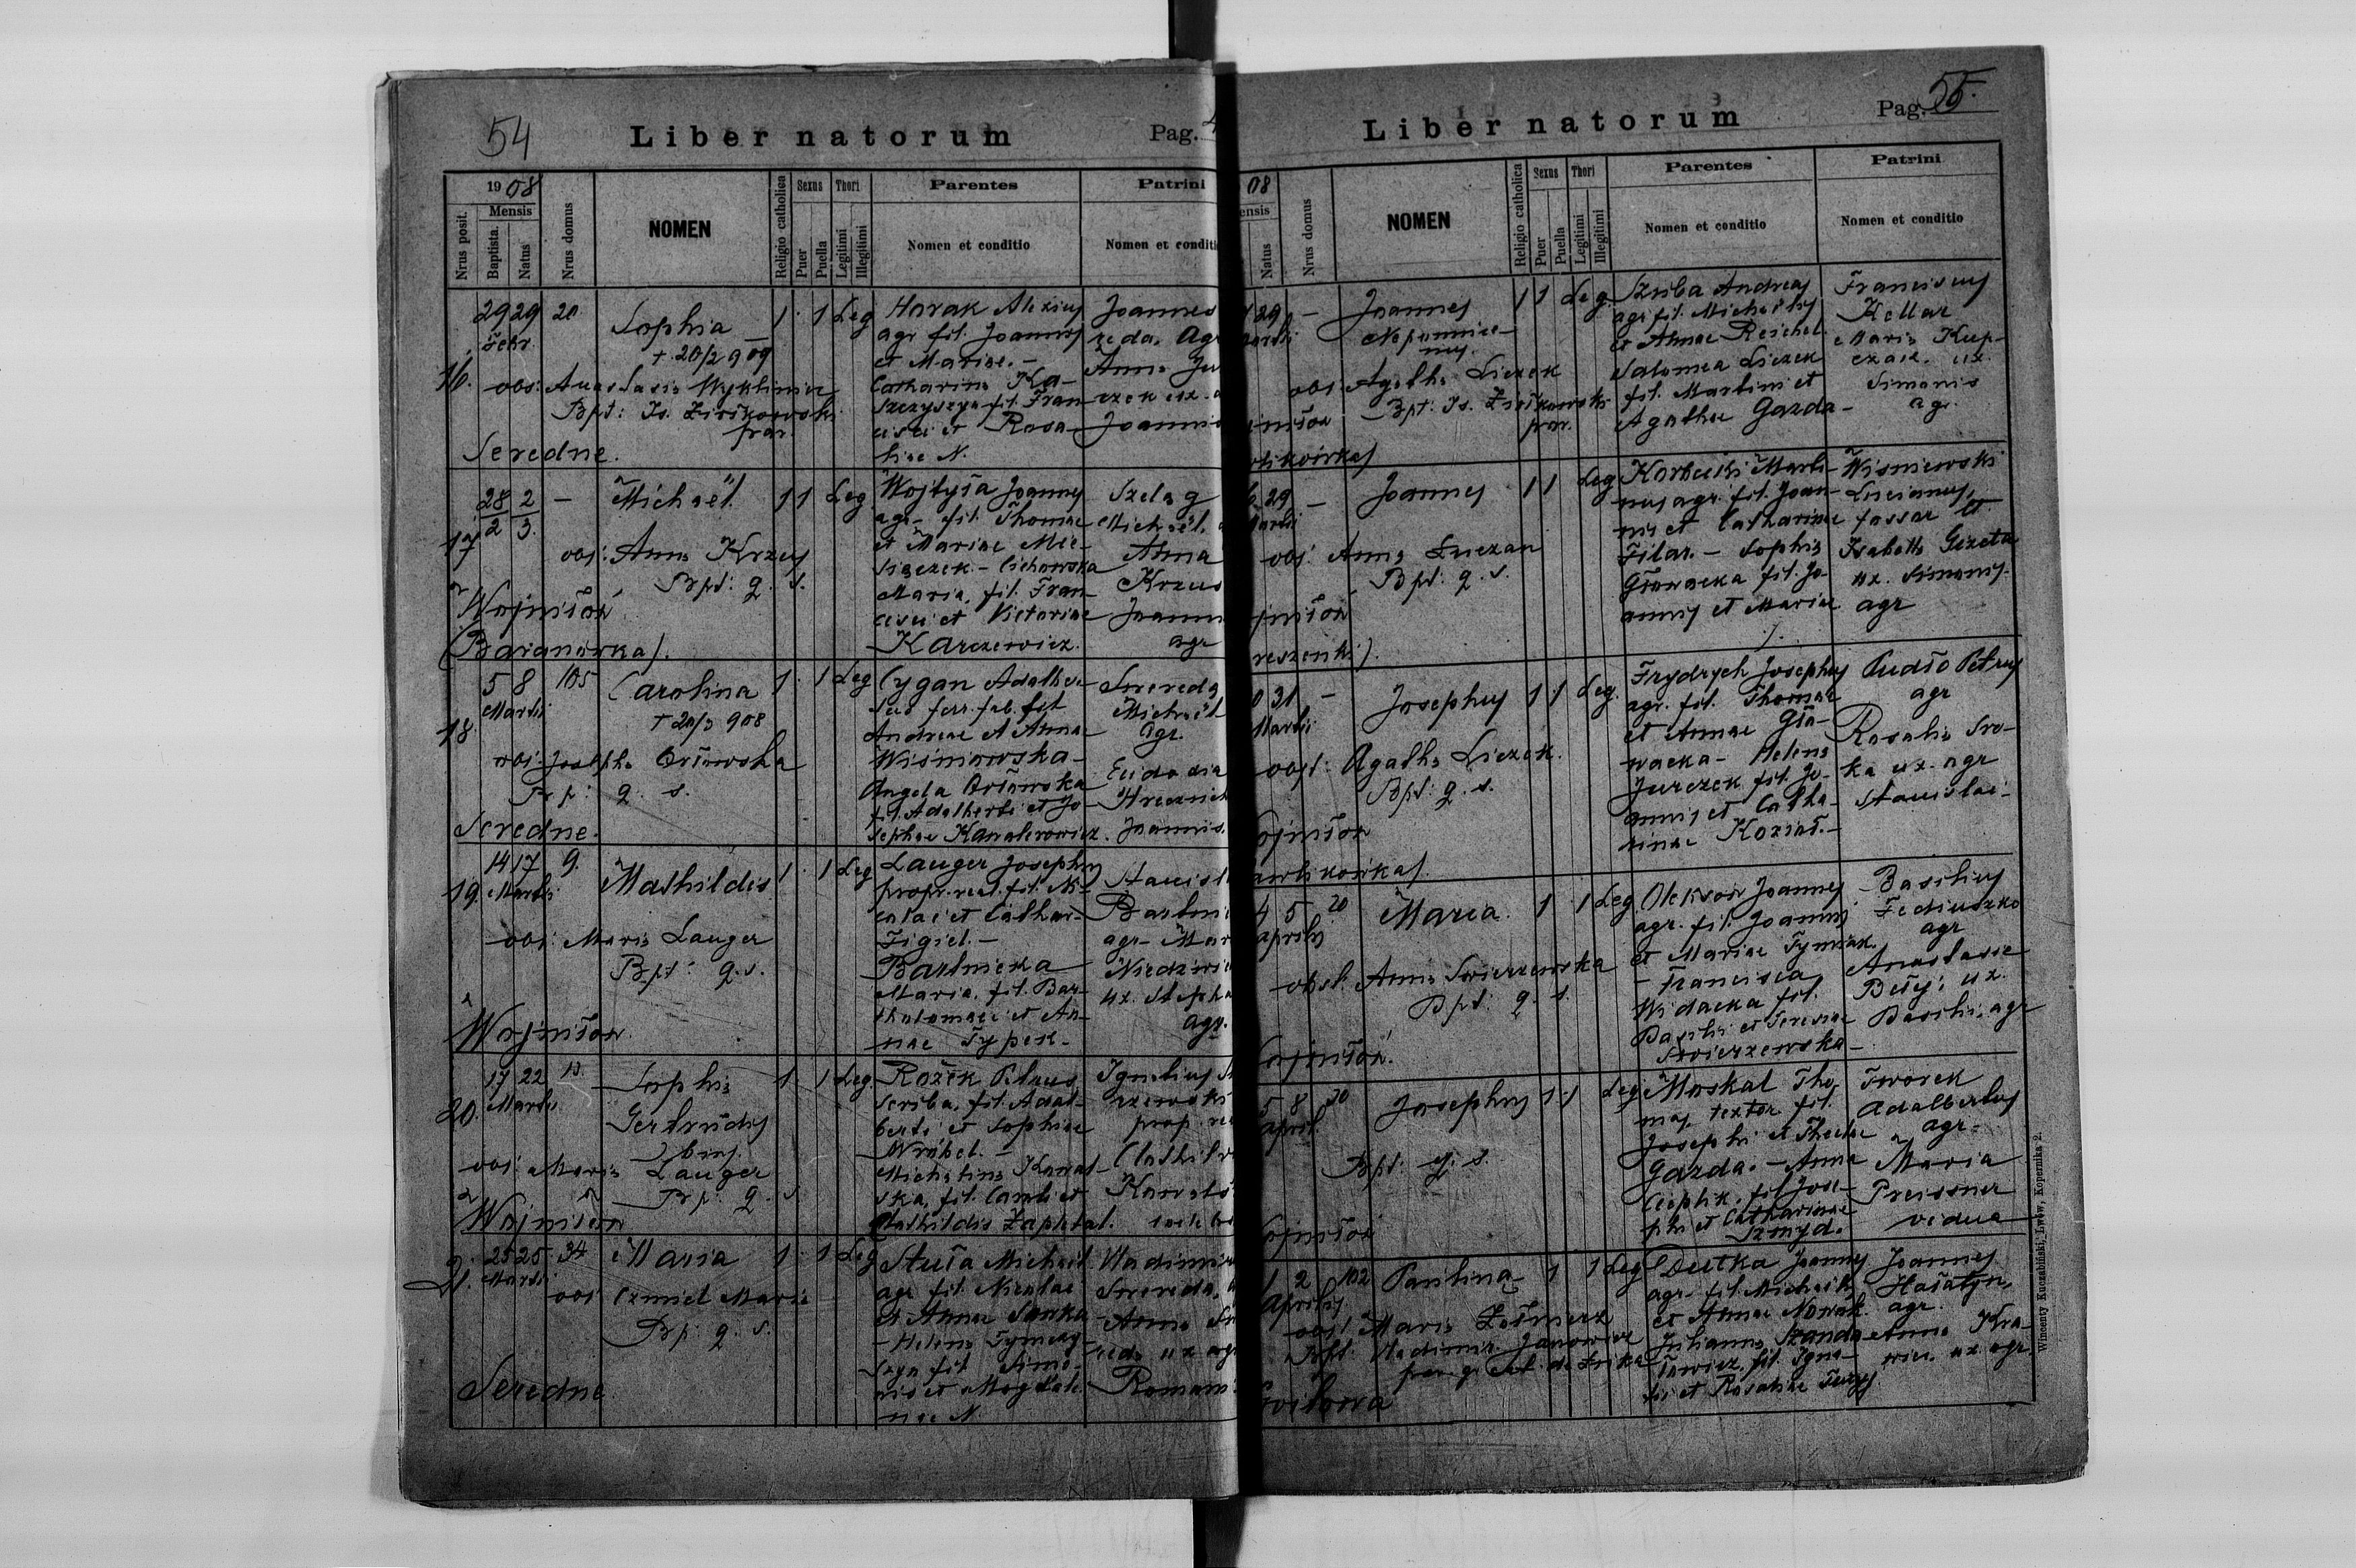 54
Liber natorum
Pag.
1908
Mensis
Nrus posit.
Baptista.
Natus
Nrus domus
NOMEN
Religio catholica
Sexus
Puer
Puella
Thori
Legitimi
Illegitimi
Parentes
Nomen et conditio
Patrini
Nomen et conditi
16.
29 29 20
Sophia
+ 20/2 909
obs: Anastasia
Bpt: Is.
par.
Seredne.
1 1 Leg
Horak Alexius
agr fil. Joannis
et Mariae.-
Catharina Ka-
fil. Fran-
cisci et Rosa-
liae N.
Joannes
reda. Agr
Anna
czek ux.
Joannis
17
28/2 2/3 -
Michaël
obs: Anna Krzus
Bpt: q. s.
Wojniłów
(Baranówka).
1 1 Leg
Wojtyła Joannes
agr. fil. Thomae
et Mariae Mie-
siączek.- Cichowska
Maria, fil. Fran-
cisci et Victoriae
Karczewicz.
Szeląg
Michaël.
Anna
Krzus
Joann
agr
18
5 8 105
Martii
Carolina
+ 20/3 908
obs: Josepha Orłowska
Bpt: q. s.
Seredne.
1 1 Leg
Cygan Adalber-
tus ferr. fab. fil
Andreae et Annae
Wiśniowska-
Angela Orłowska
fil. Adalberti et Jo-
sephae Kawalerowicz.
Swereda
Michaël
agr.
Eudodia
Joannis.
19.
14 17 9.
Martii
Mathildis
obs: Maria Lauger
Bpt: q. s.
Wojniłów
1 1 Leg
Lauger Josephus
propr. real. fil. Ni-
colai et Cathar-
Figiel.-
Bartnicka
Maria, fil. Bar-
tholomaei et An-
nae Typek-
Stanisl
Bartni
agr- Mar
Niedźwie
ux. Stepha
agr.
20.
17 22 13
Martii
Sophia
Gertrudis
bin.
obs: Maria Lauger
Bpt: q. s
Wojniłów
1 1 Leg.
Rożek Petrus
scriba, fil. Adal-
berti et Sophiae
Wróbel.-
Michalina Kowal-
ska, fil. Caroli et
Mathildis Zaplatal.
Ignatius
rzewski
prop. re
Clothild
Kowals
21.
25 25 34
Martii
Maria
obs Czmiel Maria
Bp: q. s.
Seredne
1 1 Leg
Stuła Michaël
agr fil. Nicolai
et Annae Sanka
- Helena
fil Simo-
nis et Magdale-
nae N.
Wladimir
Swereda,
Anna
reda ux agr
Romani
Liber natorum
Pag. 55.
08
ensis
Natus
Nrus domus
NOMEN
Religio catholica
Sexus
Puer
Puella
Thori
Legitimi
Illegitimi
Parentes
Nomen et conditio
Patrini
Nomen et conditio
29 -
Joannes
Nepomuce-
nus.
obs: Agatha Liczek
Bpt: Is.
par.
1 1 Leg.
Sziba Andreas
agr fil. Michaëlis
et Annae Reichel.
Salomea Liczek
fil. Martini et
Agathae Gazda-
Franciscus
Kellar
Maria Kup-
czak. ux.
Simonis
agr.
29 -
Joannes
obs: Anna Luczan
Bpt: q. s.
jniłów
1 1 Leg
Korbecki Marti-
nus agr. fil. Joan-
nis et Catharinae
Filar.- Sophia
Głowacka fil. Jo-
annis et Mariae
Wiśniewski
Lucianus,
fossor et
Isabella Gizela
ux. Simonis.
agr
31 -
Martii
Josephus
obst: Agatha Liczek.
Bpt: q. s.
ojniłów
awlikówka).
1 1 Leg.
Frydrych Josephus
agr. fil. Thomae
et Annae Gło-
wacka- Helena
Jurczek fil. Jo-
annis et Catha-
rinae Kozioł.-
Pudło Petrus
agr
Rosalia Sro-
ka ux. agr
Stanislai-
4 5 20
aprilis
Maria
obst. Anna Swierzewska
Bpt: q. s.
ojniłów.
1 1 Leg.
Oleksow Joannes
agr. fil. Joannis
et Mariae Tymiak.
- Francisca
Widacka fil.
Basilii et Teresiae
Swierzewska-
Basilius
Fediuszko
agr
Anastasie
Biły: ux.
Basilii. agr
5 8 30
april
Josephus
Bpt: q. s.
ojniłów
1 1 Leg.
Moskal Tho-
mas, textor fil.
Josephi et Theclae
Gazda.- Anna
Cieplik, fil Jose-
phi et Catharinae
Szmyd.
Tworek
Adalbertus
agr-
Maria
Preissner
vidua
1 2 102
Aprilis
Paulina
obst Maria Żołnierz
Bpt. Wladimir. Janowicz
1 1 Leg
Dutka Joannes
agr- fil. Michaëlis
et Annae Nowak.
Julianna Szanda-
łowicz, fil. Igna-
tii et Rosaliae
Joannes
Hałatyn,
agr.
Anna Kra-
wiec. ux. agr
Wincenty Kuczabiński, Lwów, Kopernika 2.